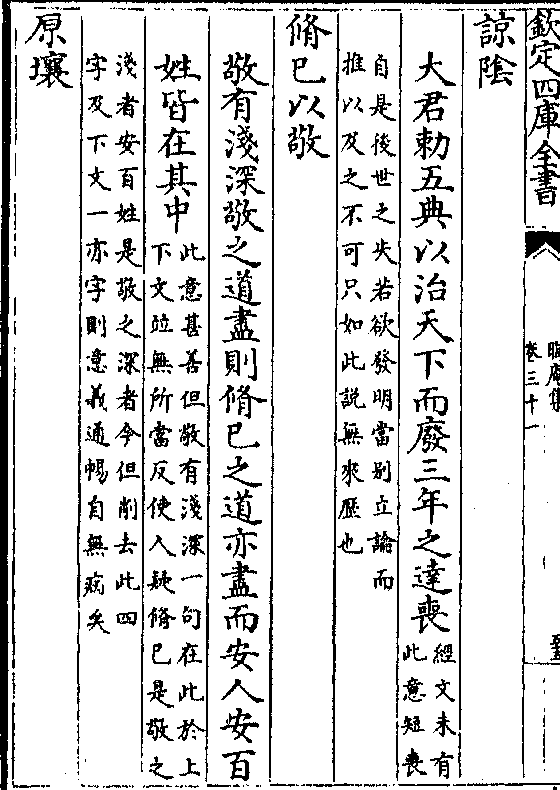 欽定四庫全書
晦庵集
卷三十一
諒陰
大君勅五典以治天下而廢三年之達喪經文未有
此意短喪
自是後世之失若欲發明當别立論而
推以及之不可只如此説無來歴也
脩已以敬
敬有淺深敬之道盡則脩已之道亦盡而安人安百
姓皆在其中此意甚善但敬有淺深一句在此於上
下文竝無所當反使人疑脩已是敬之
淺者安百姓是敬之深者今但削去此四
字及下文一亦字則意義通暢自無病矣
原壤